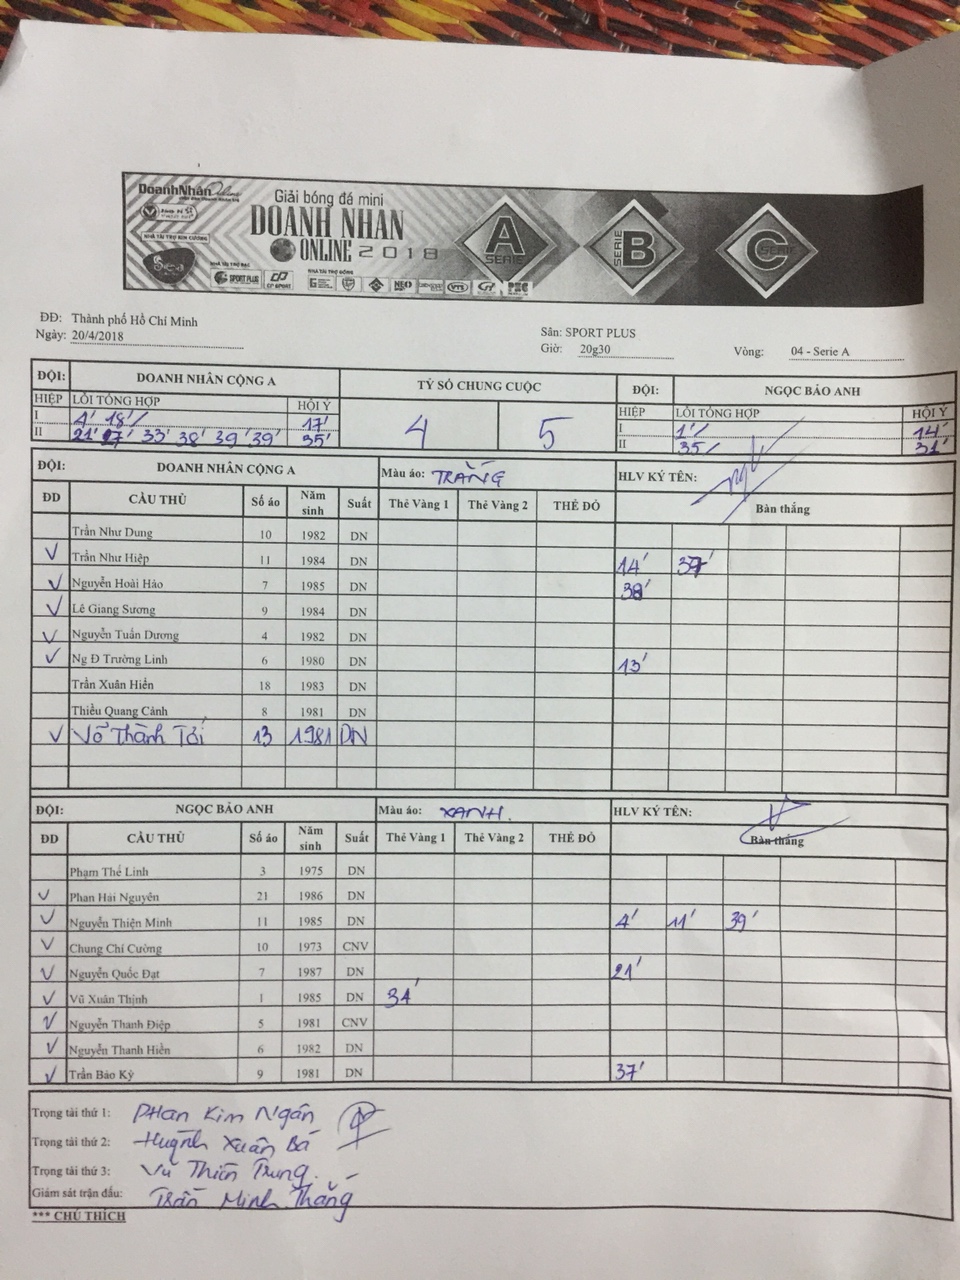 DoanhNhân Online
Giải bóng đá mini
DOANH NHAN
ONLINE 2018
A SERIE
SERIE B
C SERIE
NHÀ TÀI TRỢ KIM CƯƠNG
Sea
NHÀ TÀI TRỢ BẠC
NHÀ TÀI TRỢ ĐỒNG
SPORT PLUS CP SPORT NEO VTS PEC
ĐĐ: Thành phố Hồ Chí Minh
Ngày: 20/4/2018
Sân: SPORT PLUS
Giờ: 20g30 Vòng: 04 - Serie A
ĐỘI: DOANH NHÂN CỘNG A TỶ SỐ CHUNG CUỘC ĐỘI: NGỌC BẢO ANH
HIỆP LỖI TỔNG HỢP HỘI Ý 4 5 HIỆP LỖI TỔNG HỢP HỘI Ý
I 4' 18' 17' I 1' 14'
II 21' 27' 33' 38' 39' 39' 35' II 35 31'
ĐỘI: DOANH NHÂN CỘNG A Màu áo: TRẮNG HLV KÝ TÊN:
ĐD CẦU THỦ Số áo Năm sinh Suất Thẻ Vàng 1 Thẻ Vàng 2 THẺ ĐỎ Bàn thắng
Trần Như Dung 10 1982 DN
✓ Trần Như Hiệp 11 1984 DN 14' 37'
✓ Nguyễn Hoài Hảo 7 1985 DN 38'
✓ Lê Giang Sương 9 1984 DN
✓ Nguyễn Tuấn Dương 4 1982 DN
✓ Ng Đ Trường Linh 6 1980 DN 13'
Trần Xuân Hiển 18 1983 DN
Thiều Quang Cảnh 8 1981 DN
✓ Võ Thành Tới 13 1981 DN
ĐỘI: NGỌC BẢO ANH Màu áo: XANH. HLV KÝ TÊN:
ĐD CẦU THỦ Số áo Năm sinh Suất Thẻ Vàng 1 Thẻ Vàng 2 THẺ ĐỎ Bàn thắng
Phạm Thế Linh 3 1975 DN
✓ Phan Hải Nguyên 21 1986 DN
✓ Nguyễn Thiện Minh 11 1985 DN 4' 11' 39'
✓ Chung Chí Cường 10 1973 CNV
✓ Nguyễn Quốc Đạt 7 1987 DN 21'
✓ Vũ Xuân Thịnh 1 1985 DN 34'
✓ Nguyễn Thanh Điệp 5 1981 CNV
✓ Nguyễn Thanh Hiền 6 1982 DN
✓ Trần Bảo Kỳ 9 1981 DN 37'
Trọng tài thứ 1: Phan Kim Ngân
Trọng tài thứ 2: Huỳnh Xuân Bá
Trọng tài thứ 3: Vũ Thiên Trung.
Giám sát trận đấu: Trần Minh Thắng
*** CHÚ THÍCH